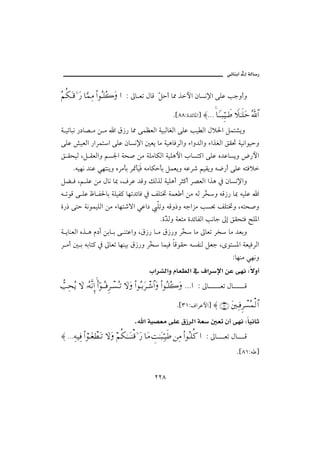 رسالة إلى ابنائي
وأوجب على الإنسان الآخذ مما أحلّ قال تعالى : ﴿ وَكُلُوا۟ مِمَّا رَزَقَكُمُ
ٱللَّهُ حَلَٰلًا طَيِّبًا ... ﴾ [المائدة:٨٨].
ويشتمل الحلال الطيب على الغالبية العظمى مما رزق الله من مصادر نباتية
وحيوانية تحقق الغذاء والدواء والرفاهية ما يعين الإنسان على استمرار العيش على
الأرض ويساعده على اكتساب الأهلية الكاملة من صحة الجسم والعقل، ليحقق
خلافته على أرضه ويقيم شرعه ويعمل بأحكامه فيأتمر بأمره وينتهي عند نهيه.
والإنسان في هذا العصر أكثر أهلية لذلك وقد عرف، بما نال من علم، فضل
الله عليه بما رزقه وسخّر له من أطعمة تختلف في فائدتها كفيلة بالحفاظ على قوته
وصحته، وتختلف بحسب مزاجه وذوقه وتلبّي داعي الاشتهاء من الليمونة حتى ذرة
الملح فتحقق إلى جانب الفائدة متعة ولذّة.
وبعد ما سخر تعالى ما سخّر ورزق ما رزق، واعتنى بابن آدم هذه العناية
الرفيعة المستوى، جعل لنفسه حقوقاً فيما سخّر ورزق بينها تعالى في كتابه بين آمر
ونهي منها:
أولاً: نهى عن الإسراف في الطعام والشراب
قال تعالى : ﴿ ... وَكُلُوا۟ وَٱشْرَبُوا۟ وَلَا تُسْرِفُوٓا۟ إِنَّهُۥ لَا يُحِبُّ
ٱلْمُسْرِفِينَ ﴾ [الأعراف:٣١].
ثانياً: نهى أن تعين سعة الرزق على معصية الله.
قال تعالى : ﴿ كُلُوا۟ مِن طَيِّبَٰتِ مَا رَزَقْنَٰكُمْ وَلَا تَطْغَوْا۟ فِيهِ... ﴾
[طه:٨١].
٢٢٨